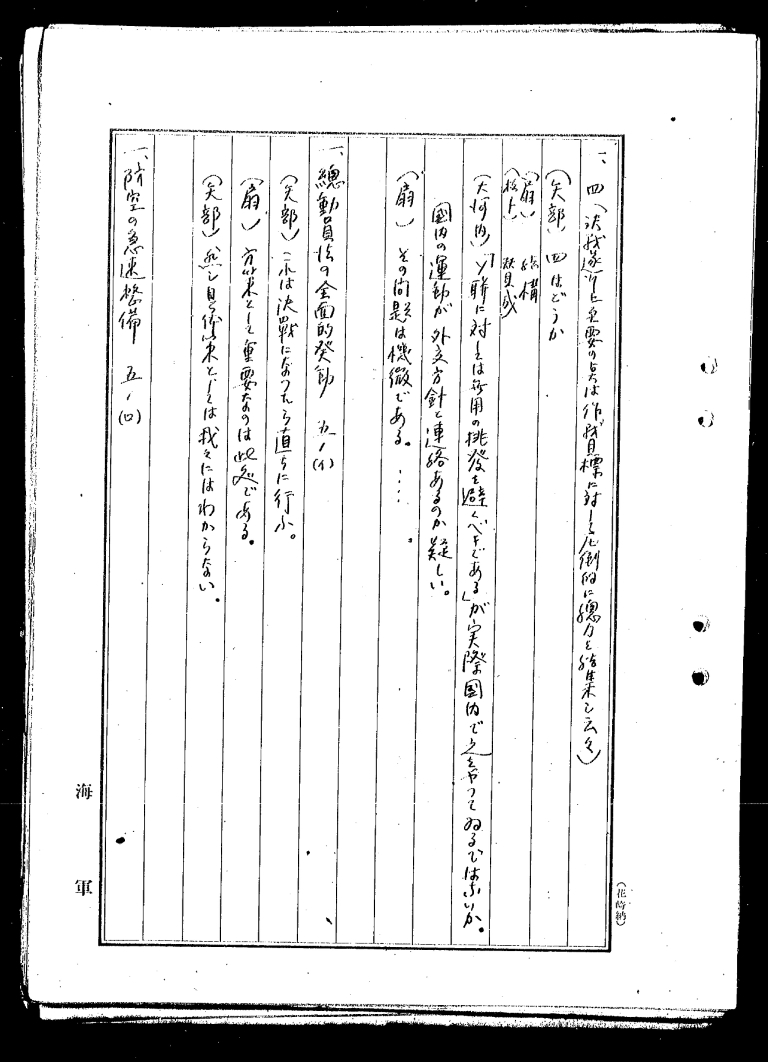 一、四(決戦遂行上重要の点は作戦目標に対する圧倒的に總力を結集し云々)
(矢部) 四はどうか
(扇) 結構
(松下) 賛成
(大河内)「ソ聯に対しては無用の挑発を避くべきである」が実際国内で之をやつてゐるではないか。
国内の運動が外交方針と連絡あるのか疑しい。
(扇) その問題は機微である。……。
一、總動員法の全面的発動 五ノ(イ)
(矢部) これは決戦になつたら直ちに行ふ。
(扇) 方策として重要なのは此処である。
(矢部) 然し具体策としては我々にはわからない。
一、防空の急速整備 五ノ(ロ)
海軍
(花崎納)